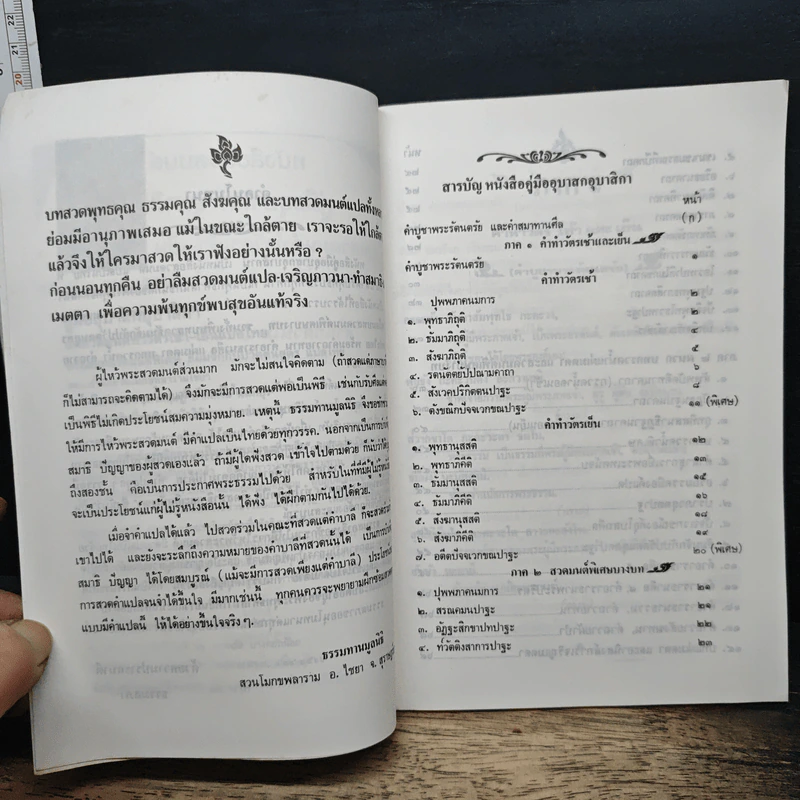 บทสวดพุทธคุณ ธรรมคุณ สังฆคุณ และบทสวดมนต์แปลทั้งหลาย
ย่อมมีอานุภาพเสมอ แม้ในขณะใกล้ตาย เราจะรอให้ใกล้ตาย
แล้วจึงให้ใครมาสวดให้เราฟังอย่างนั้นหรือ ?
ก่อนนอนทุกคืน อย่าลืมสวดมนต์แปล-เจริญภาวนา-ทำสมาธิ
เมตตา เพื่อความพ้นทุกข์พบสุขอันแท้จริง
ผู้ไหว้พระสวดมนต์ส่วนมาก มักจะไม่สนใจคิดตาม (ถ้าสวดแต่ภาษาบาลี
ก็ไม่สามารถจะคิดตามได้) จึงมักจะมีการสวดแต่พอเป็นพิธี เช่นกับรับศีลแต่
เป็นพิธีไม่เกิดประโยชน์สมความมุ่งหมาย. เหตุนี้ ธรรมทานมูลนิธิ จึงขอชัก
ให้มีการไหว้พระสวดมนต์ มีคำแปลเป็นไทยด้วยทุกวรรค. นอกจากเป็นการ
สมาธิ ปัญญาของผู้สวดเองแล้ว ถ้ามีผู้ใดฟังสวด เข้าใจไปตามด้วย ก็นับว่าได้
ถึงสองชั้น คือเป็นการประกาศพระธรรมไปด้วย สำหรับในที่ที่มีผู้ไม่รู้หนัง
จะเป็นประโยชน์แก่ผู้ไม่รู้หนังสือนั้น ได้ฟัง ได้ฝึกตามกันไปได้ด้วย.
เมื่อจำคำแปลได้แล้ว ไปสวดร่วมในคณะที่สวดแต่คำบาลี ก็จะสวด
เขาไปได้ และยังจะระลึกถึงความหมายของคำบาลีที่สวดนั้นได้ เป็นการ
สมาธิ ปัญญา ได้โดยสมบูรณ์ (แม้จะมีการสวดเพียงแต่คำบาลี) ประโยชน์
การสวดคำแปลจนจำได้ขึ้นใจ มีมากเช่นนี้ ทุกคนควรจะพยายามฝึกซ้อม
แบบมีคำแปลนี้ ให้ได้อย่างขึ้นใจจริง ๆ.
ธรรมทานมูลนิธิ
สวนโมกขพลาราม อ. ไชยา จ. สุราษฎร์
สารบัญ หนังสือคู่มืออุบาสกอุบาสิกา
หน้า
คำบูชาพระรัตนตรัย และคำสมาทานศีล (ก)
ภาค ๑ คำทำวัตรเช้าและเย็น
คำบูชาพระรัตนตรัย ๑
คำทำวัตรเช้า
ปุพพภาคนมการ ๒
๑. พุทธาภิถุติ ๒
๒. ธัมมาภิถุติ ๔
๓. สังฆาภิถุติ ๕
๔. รตนัตตัยปปณามคาถา ๖
๕. สังเวคปริกิตตนปาฐะ ๘
๖. ตังขณิกปัจจเวกขณปาฐะ ๑๑ (พิเศษ)
คำทำวัตรเย็น
๑. พุทธานุสสติ ๑๒
๒. พุทธาภิคีติ ๑๓
๓. ธัมมานุสสติ ๑๕
๔. ธัมมาภิคีติ ๑๖
๕. สังฆานุสสติ ๑๘
๖. สังฆาภิคีติ ๑๙
๗. อตีตปัจจเวกขณปาฐะ ๒๐ (พิเศษ)
ภาค ๒ สวดมนต์พิเศษบางบท
๑. ปุพพภาคนมการ ๒๑
๒. สรณคมนปาฐะ ๒๑
๓. อัฏฐะสิกขาปทปาฐะ ๒๒
๔. ท๎วัตติงสาการปาฐะ ๒๓
20
21
22